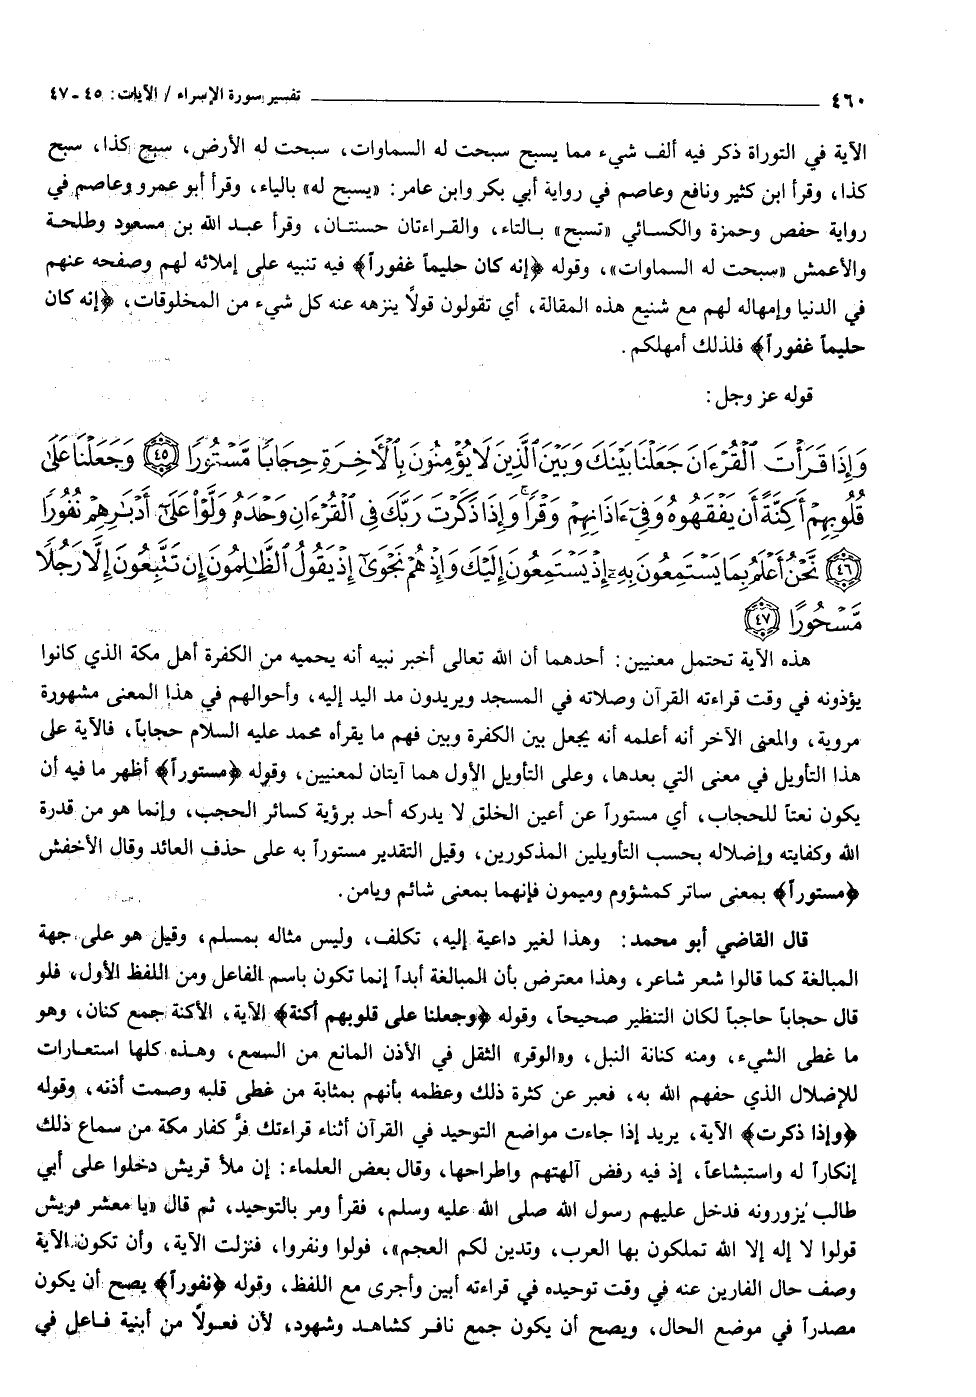 ٤٦٠ تفسير سورة الإسراء / الآيات: ٤٥ ـ ٤٧
الآية في التوراة ذكر فيه ألف شيء مما يسبح سبحت له السماوات، سبحت له الأرض، سبح كذا، سبح
كذا، وقرأ ابن كثير ونافع وعاصم في رواية أبي بكر وابن عامر: «يسبح له» بالياء، وقرأ أبو عمرو وعاصم في
رواية حفص وحمزة والكسائي «تسبح» بالتاء، والقراءتان حسنتان، وقرأ عبد الله بن مسعود وطلحة
والأعمش «سبحت له السماوات»، وقوله ﴿إنه كان حليماً غفوراً﴾ فيه تنبيه على إملائه لهم وصفحه عنهم
في الدنيا وإمهاله لهم مع شنيع هذه المقالة، أي تقولون قولاً ينزهه عنه كل شيء من المخلوقات، ﴿إنه كان
حليماً غفوراً﴾ فلذلك أمهلكم.
قوله عز وجل:
وَإِذَا قَرَأْتَ ٱلْقُرْءَانَ جَعَلْنَا بَيْنَكَ وَبَيْنَ ٱلَّذِينَ لَا يُؤْمِنُونَ بِٱلْأَخِرَةِ حِجَابًا مَّسْتُورًا ﴿٤٥﴾ وَجَعَلْنَا عَلَىٰ
قُلُوبِهِمْ أَكِنَّةً أَن يَفْقَهُوهُ وَفِىٓ ءَاذَانِهِمْ وَقْرًا ۚ وَإِذَا ذَكَرْتَ رَبَّكَ فِى ٱلْقُرْءَانِ وَحْدَهُۥ وَلَّوْا۟ عَلَىٰٓ أَدْبَٰرِهِمْ نُفُورًا
﴿٤٦﴾ نَّحْنُ أَعْلَمُ بِمَا يَسْتَمِعُونَ بِهِۦٓ إِذْ يَسْتَمِعُونَ إِلَيْكَ وَإِذْ هُمْ نَجْوَىٰٓ إِذْ يَقُولُ ٱلظَّٰلِمُونَ إِن تَتَّبِعُونَ إِلَّا رَجُلًا
مَّسْحُورًا ﴿٤٧﴾
هذه الآية تحتمل معنيين: أحدهما أن الله تعالى أخبر نبيه أنه يحميه من الكفرة أهل مكة الذي كانوا
يؤذونه في وقت قراءته القرآن وصلاته في المسجد ويريدون مد اليد إليه، وأحوالهم في هذا المعنى مشهورة
مروية، والمعنى الآخر أنه أعلمه أنه يجعل بين الكفرة وبين فهم ما يقرأه محمد عليه السلام حجاباً، فالآية على
هذا التأويل في معنى التي بعدها، وعلى التأويل الأول هما آيتان لمعنيين، وقوله ﴿مستوراً﴾ أظهر ما فيه أن
يكون نعتاً للحجاب، أي مستوراً عن أعين الخلق لا يدركه أحد برؤية كسائر الحجب، وإنما هو من قدرة
الله وكفايته وإضلاله بحسب التأويلين المذكورين، وقيل التقدير مستوراً به على حذف العائد وقال الأخفش
﴿مستوراً﴾ بمعنى ساتر كمشؤوم وميمون فإنهما بمعنى شائم ويامن.
قال القاضي أبو محمد: وهذا لغير داعية إليه، تكلف، وليس مثاله بمسلم، وقيل هو على جهة
المبالغة كما قالوا شعر شاعر، وهذا معترض بأن المبالغة أبداً إنما تكون باسم الفاعل ومن اللفظ الأول، فلو
قال حجاباً حاجباً لكان التنظير صحيحاً، وقوله ﴿وجعلنا على قلوبهم أكنة﴾ الآية، الأكنة جمع كنان، وهو
ما غطى الشيء، ومنه كنانة النبل، و«الوقر» الثقل في الأذن المانع من السمع، وهذه كلها استعارات
للإضلال الذي حفهم الله به، فعبر عن كثرة ذلك وعظمه بأنهم بمثابة من غطى قلبه وصمت أذنه، وقوله
﴿وإذا ذكرت﴾ الآية، يريد إذا جاءت مواضع التوحيد في القرآن أثناء قراءتك فرَّ كفار مكة من سماع ذلك
إنكاراً له واستبشاعاً، إذ فيه رفض آلهتهم واطراحها، وقال بعض العلماء: إن ملأ قريش دخلوا على أبي
طالب يزورونه فدخل عليهم رسول الله صلى الله عليه وسلم، فقرأ ومر بالتوحيد، ثم قال «يا معشر قريش
قولوا لا إله إلا الله تملكون بها العرب، وتدين لكم العجم»، فولوا ونفروا، فنزلت الآية، وأن تكون الآية
وصف حال الفارين عنه في وقت توحيده في قراءته أبين وأجرى مع اللفظ، وقوله ﴿نفوراً﴾ يصح أن يكون
مصدراً في موضع الحال، ويصح أن يكون جمع نافر كشاهد وشهود، لأن فعولاً من أبنية فاعل في